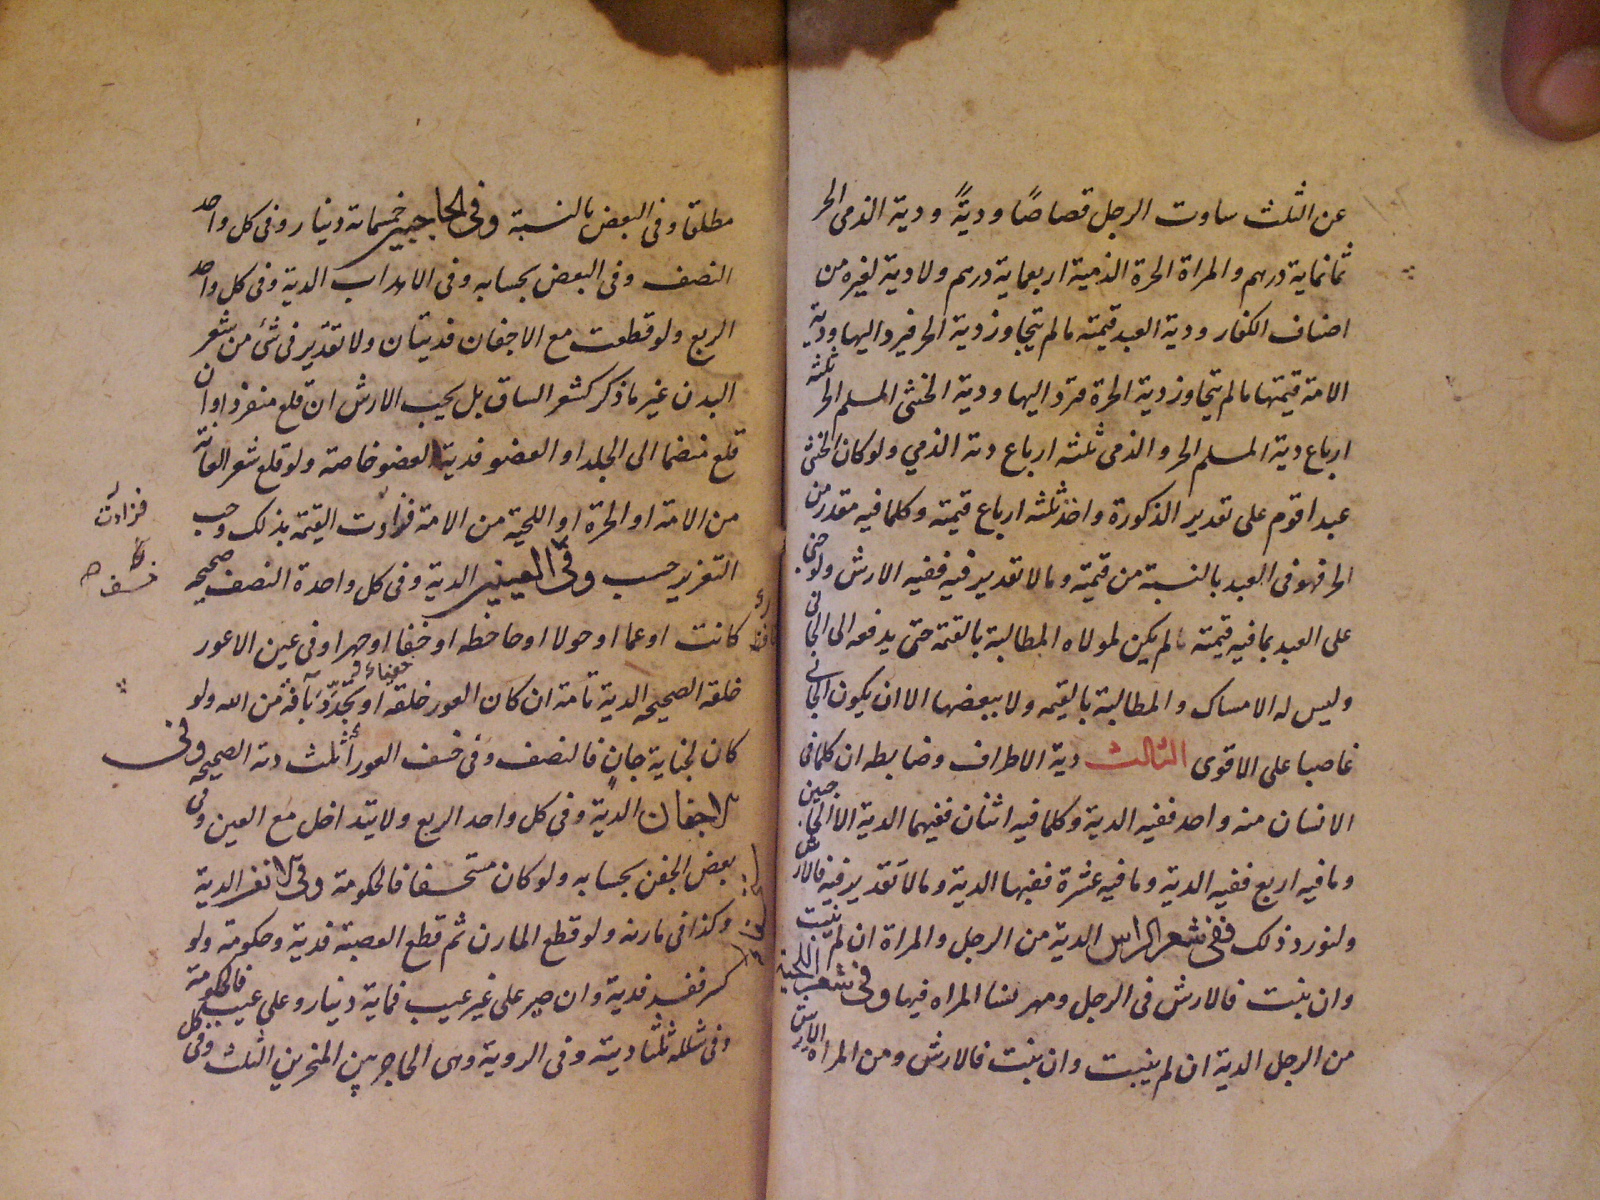 عن الثلث ساوت الرجل قصاصًا وديةً ودية الذمى الحر
ثمانماية درهم والمراة الحرة الذمية اربعماية درهم ولادية لغيره من
اصناف الكفار ودية العبد قيمته مالم يتجاوز دية الحر فيرد اليها ودية
الامة قيمتها مالم يتجاوز دية الحرة فترد اليها ودية الخنثى المسلم الحر ثلثه
ارباع دية المسلم الحر والذمى ثلثه ارباع دية الذمي ولوكان الخنثى
عبدا قوم على تقدير الذكورة واخذ ثلثه ارباع قيمته وكلما فيه مقدر من
الحر فهو فى العبد بالنسبة من قيمته ومالا تقدير فيه ففيه الارش ولو جنى
على العبد بما فيه قيمته لم يكن لمولاه المطالبة بالقيمة حتى يدفعه الى الجانى
وليس له الامساك والمطالبة بالقيمه ولا ببعضها الا ان يكون الجانى
غاصبا على الاقوى الثالث دية الاطراف وضابطه ان كلما فى
الانسان منه واحد ففيه الدية وكلما فيه اثنان ففيهما الدية الا الحاجبين
وما فيه اربع ففيه الدية وما فيه عشرة ففيها الدية ومالا تقدير فيه فالارش
ولنورد ذلك ففى شعر الراس الدية من الرجل والمراة ان لم ينبت
وان نبت فالارش فى الرجل ومهر نسا المراه فيها وفى شعر اللحية
من الرجل الدية ان لم ينبت وان نبت فالارش ومن المراة الارش
مطلقا وفى البعض بالنسبة وفى الحاجبين خمسماية دينار وفى كل واحد
النصف وفى البعض بحسابه وفى الاهداب الدية وفى كل واحد
الربع ولو قطعت مع الاجفان فديتان ولا تقدير فى شئ من شعر
البدن غير ما ذكر كشعر الساق بل يجب الارش ان قلع منفردا وان
قلع منضما الى الجلد او العضو فدية العضو خاصة ولو قلع شعر العانة
من الامة او الحرة او اللحية من الامة فزادت القيمة بذلك وجب
التعزير حسب وفى العينين الدية وفى كل واحدة النصف صحيحه
كانت او عما او حولا او جاحظه او خفا او جهرا وفى عين الاعور
خلقه الصحيحه الدية تامة ان كان العور خلقه او تجدد بآفة من الله ولو
كان لجناية جانٍ فالنصف وفى خسف العورا ثلث دية الصحيحه وفى
الاجفان الدية وفى كل واحد الربع ولا يتداخل مع العين وفى
بعض الجفن بحسابه ولو كان مستحسفا فالحكومة وفى الانف الدية
وكذا فى مارنه ولو قطع المارن ثم قطع القصبة فدية وحكومة ولو
كسر ففسد فدية وان جبر على غير عيب فماية دينار وعلى عيب فالحكومة
وفى شلله ثلثا ديته وفى الروثة وهى الحاجز بين المنخرين الثلث وفى كل
فزادت
خسف